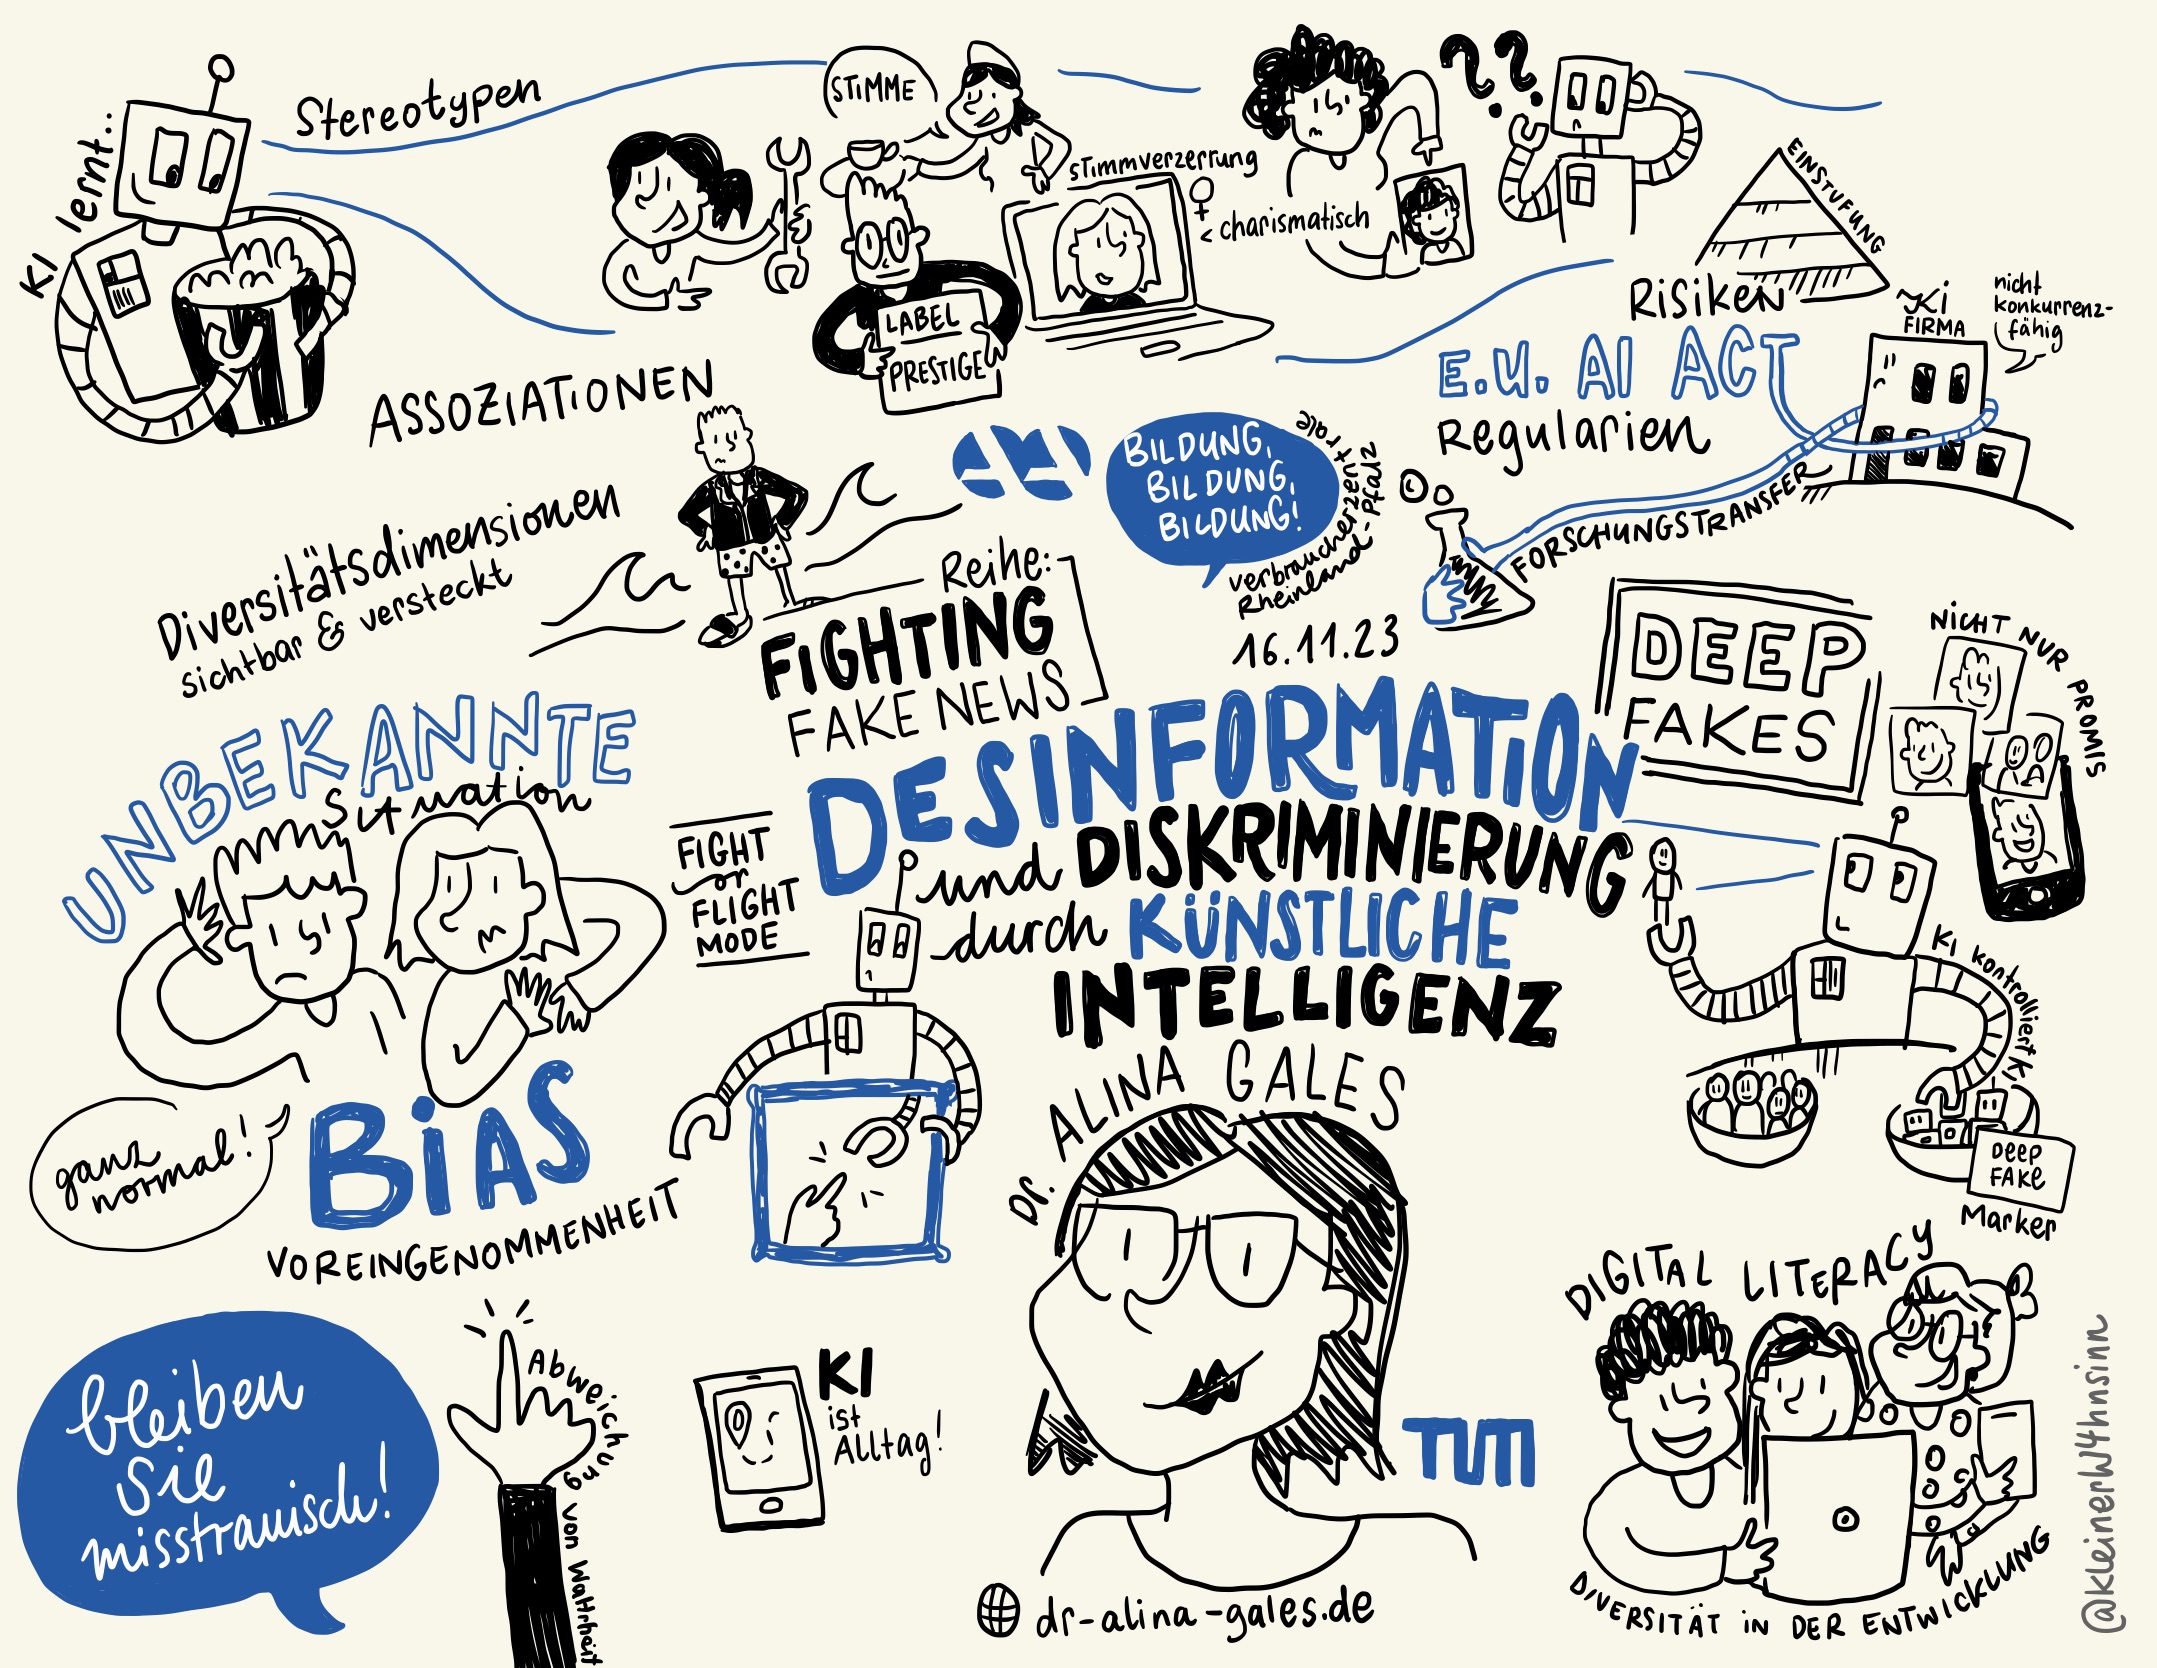 KI lernt..
Stereotypen
STIMME
Stimmverzerrung
< charismatisch
??
EINSTUFUNG
Risiken
LABEL
PRESTIGE
ASSOZIATIONEN
E.U. AI ACT
Regularien
KI
FIRMA
nicht
konkurrenz-
fähig
FORSCHUNGSTRANSFER
BILDUNG,
BILDUNG,
BILDUNG!
Verbraucherzentrale
Rheinland-Pfalz
16.11.23
Diversitätsdimensionen
sichtbar & versteckt
Reihe:
FIGHTING
FAKE NEWS
DEEP
FAKES
NICHT NUR PROMIS
UNBEKANNTE
Situation
FIGHT
or
FLIGHT
MODE
DESINFORMATION
und DISKRIMINIERUNG
durch KÜNSTLICHE
INTELLIGENZ
Dr. ALINA GALES
KI kontrolliert KI
DEEP
FAKE
Marker
ganz
normal!
BIAS
VOREINGENOMMENHEIT
bleiben
Sie
misstrauisch!
Abweichung von Wahrheit
KI
ist
Alltag!
TUM
dr-alina-gales.de
DIGITAL LITERACY
DIVERSITÄT IN DER ENTWICKLUNG
@kleinerW4hnsinn